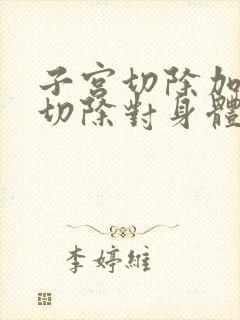 子宮切除加
切除對身體
李婷維